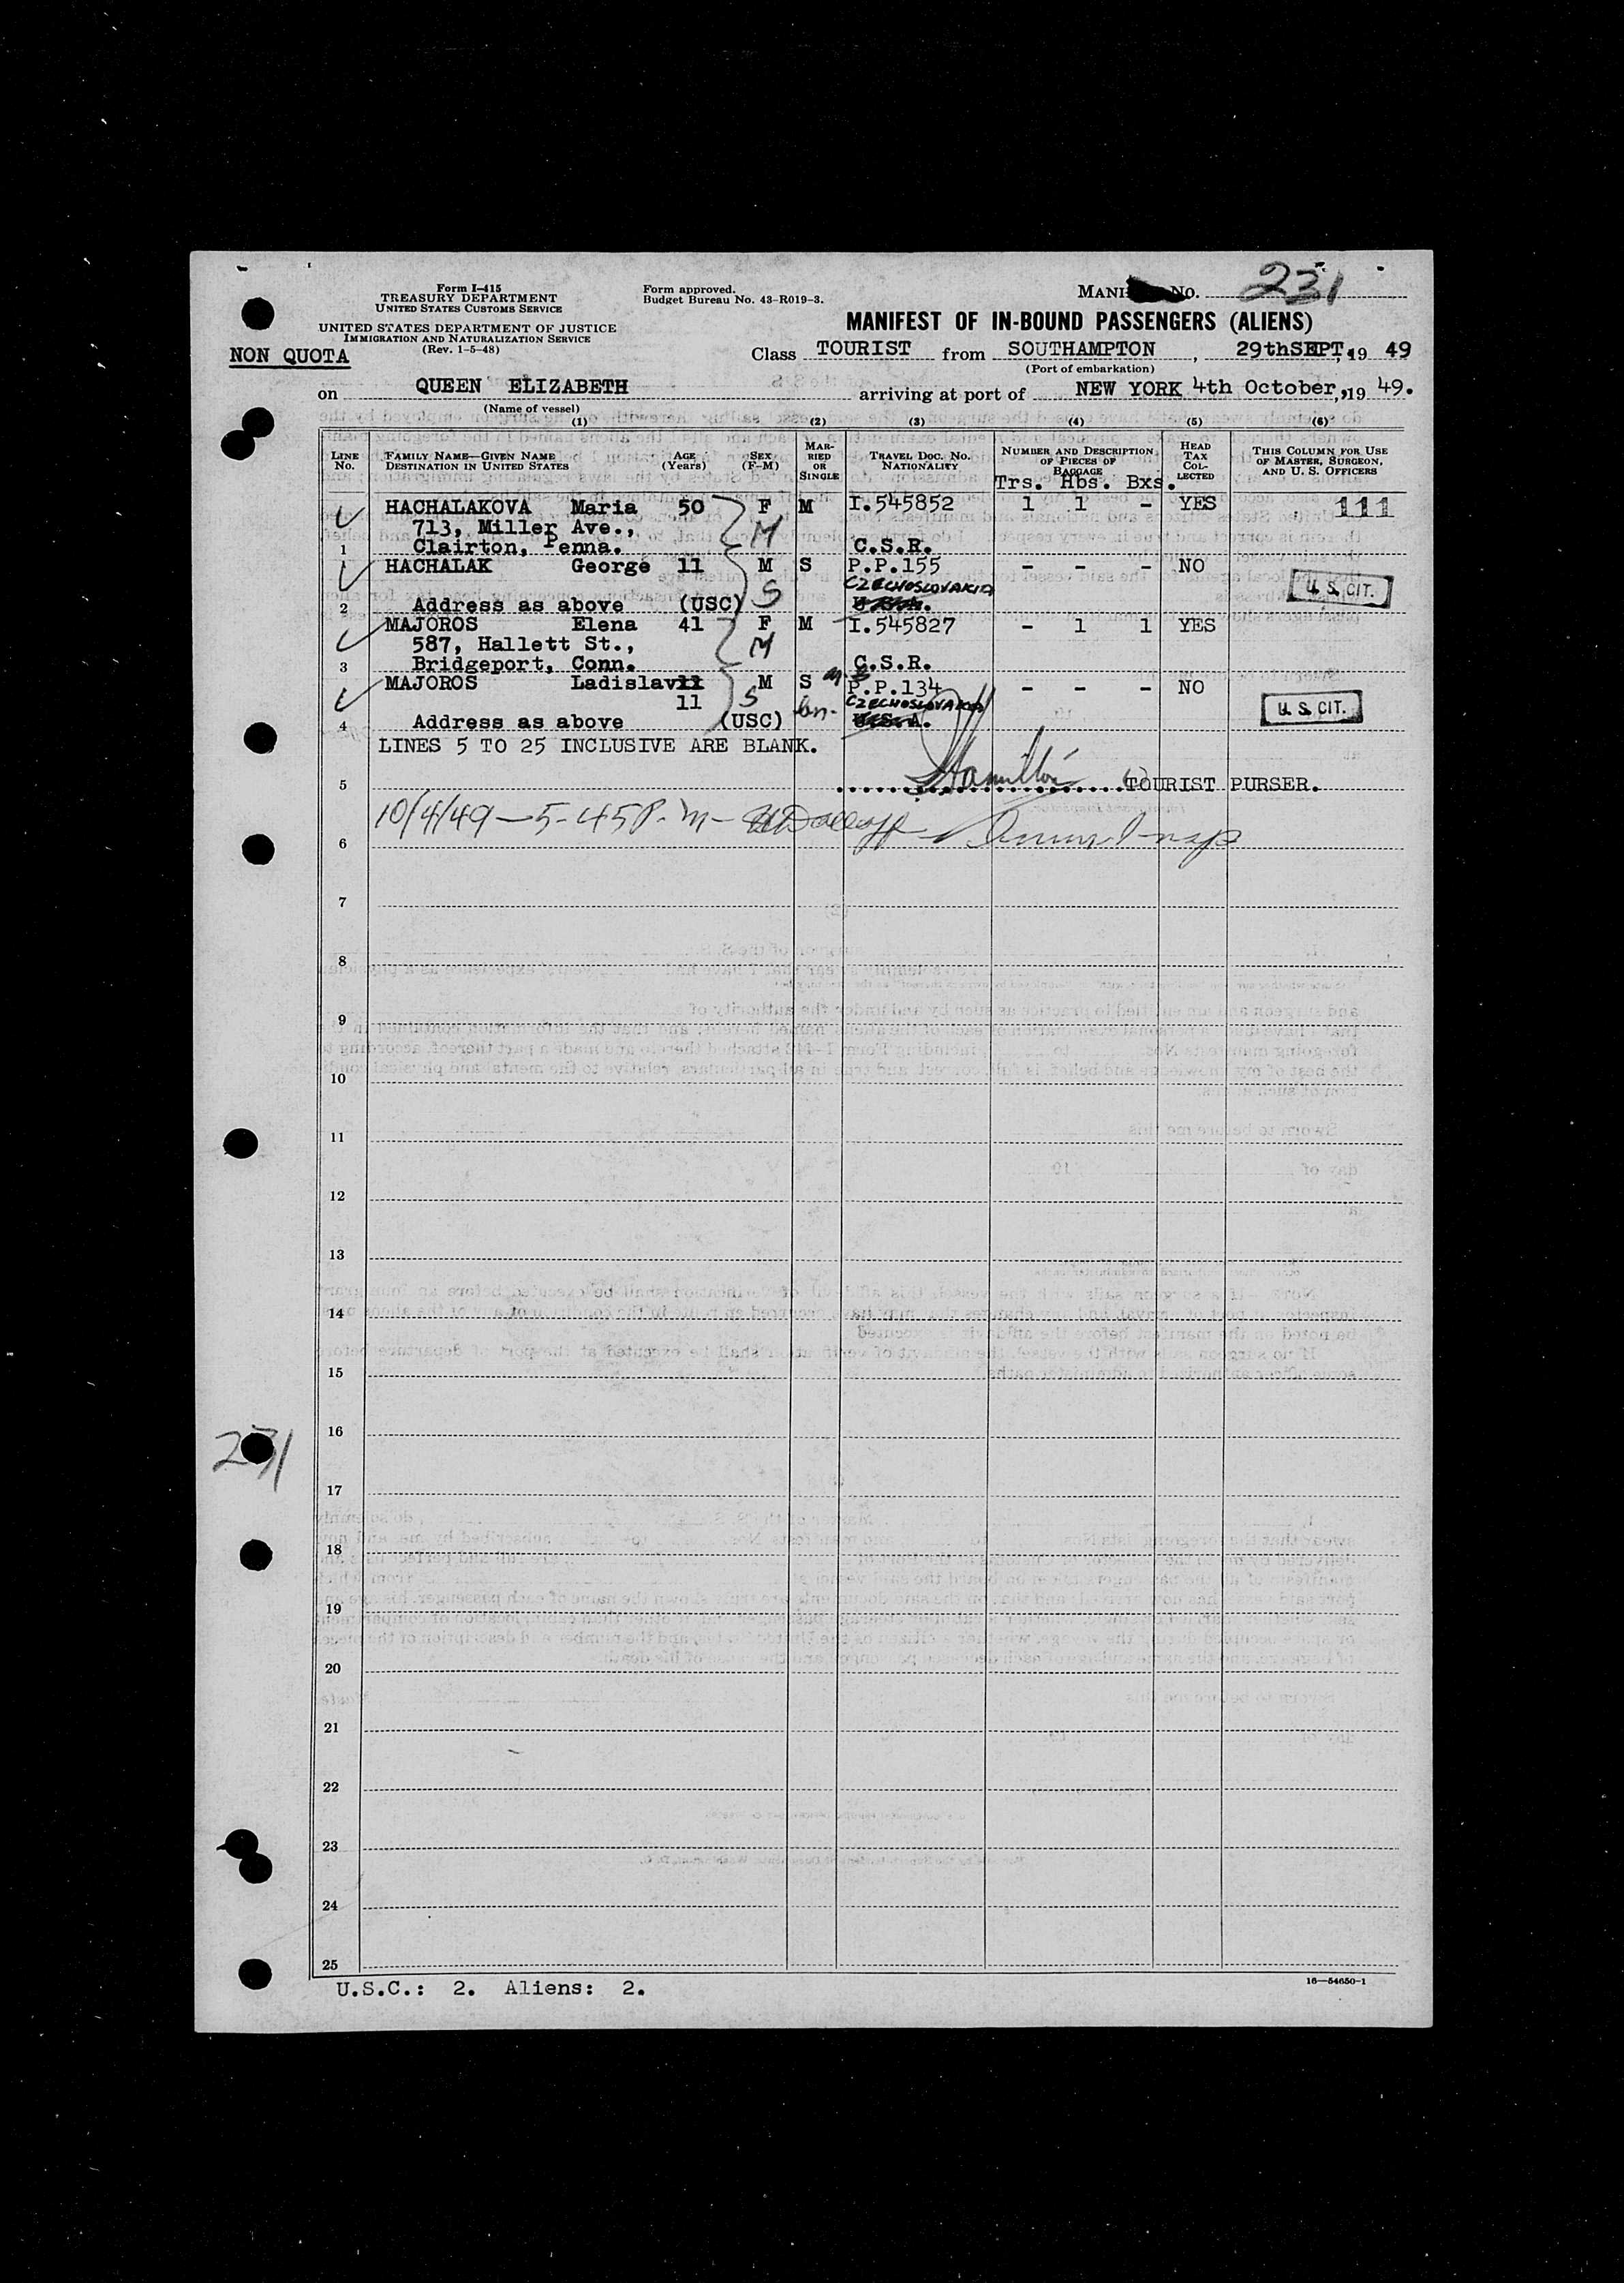 Form I-415
TREASURY DEPARTMENT
UNITED STATES CUSTOMS SERVICE
UNITED STATES DEPARTMENT OF JUSTICE
IMMIGRATION AND NATURALIZATION SERVICE
(Rev. 1-5-48)
NON QUOTA
Form approved.
Budget Bureau No. 43-R019-3.
MANI No. 231
MANIFEST OF IN-BOUND PASSENGERS (ALIENS)
Class TOURIST from SOUTHAMPTON, 29th SEPT, 19 49
(Port of embarkation)
on QUEEN ELIZABETH arriving at port of NEW YORK 4th October, 19 49.
(Name of vessel)
(1) (2) (3) (4) (5) (6)
LINE No. FAMILY NAME—GIVEN NAME DESTINATION IN UNITED STATES AGE (Years) SEX (F-M) MARRIED OR SINGLE TRAVEL DOC. No. NATIONALITY NUMBER AND DESCRIPTION OF PIECES OF BAGGAGE HEAD TAX COLLECTED THIS COLUMN FOR USE OF MASTER, SURGEON, AND U. S. OFFICERS
Trs. Hbs. Bxs.
HACHALAKOVA Maria 50 F M I.545852 1 1 - YES 111
713, Miller Ave., M
1 Clairton, Penna. C.S.R.
HACHALAK George 11 M S P.P.155 - - - NO
S CZECHOSLOVAKIA U. S. CIT.
2 Address as above (USC)
MAJOROS Elena 41 F M I.545827 - 1 1 YES
587, Hallett St., M
3 Bridgeport, Conn. C.S.R.
MAJOROS Ladislav 11 M S P.P.134 - - - NO
11 S CZECHOSLOVAKIA U. S. CIT.
4 Address as above (USC) U.S.A.
LINES 5 TO 25 INCLUSIVE ARE BLANK.
5 Hamilton TOURIST PURSER.
10/4/49 — 5-45 P.M —
6
7
8
9
10
11
12
13
14
15
16
231
17
18
19
20
21
22
23
24
25
U.S.C.: 2. Aliens: 2.
16—54650-1